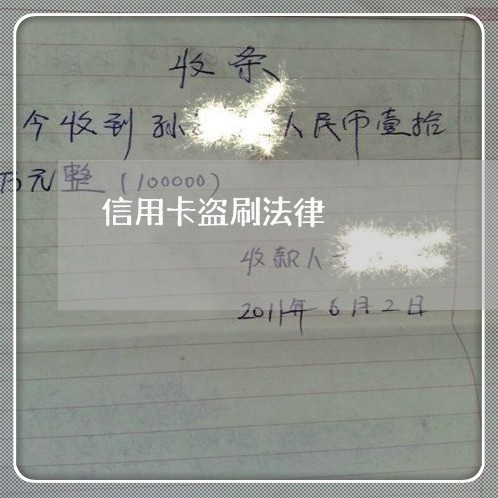 收条
今收到孙 人民币壹拾
万元整（100000）
信用卡盗刷法律
收款人
2011年6月2日